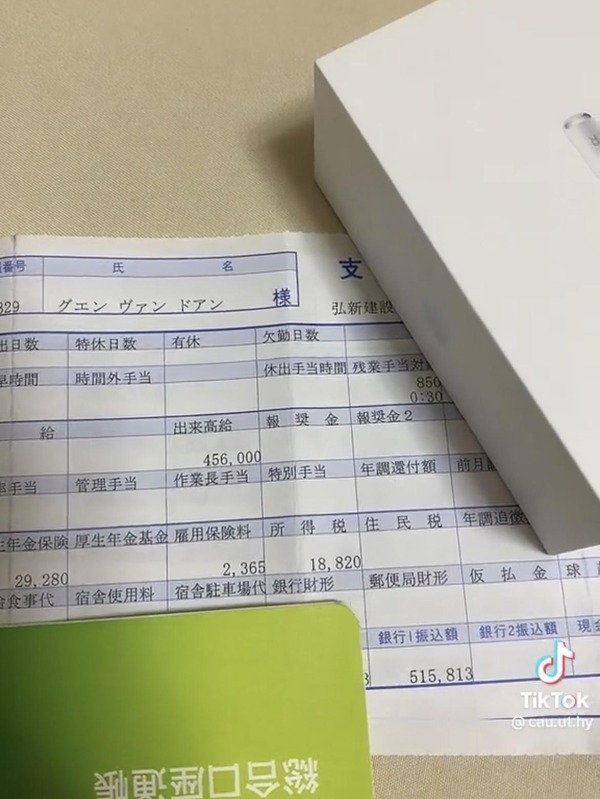 氏 名 支
829 グエン ヴァン ドアン 様 弘新建設
出日数 特休日数 有休 欠勤日数
時間 時間外手当 休出手当時間 残業手当対
850
0:30
給 出来高給 報 奨 金 報奨金2
456,000
手当 管理手当 作業長手当 特別手当 年調還付額 前月
生年金保険 厚生年金基金 雇用保険料 所 得 税 住 民 税 年調追徴
29,280 2,365 18,820
食事代 宿舎使用料 宿舎駐車場代 銀行財形 郵便局財形 仮 払 金 球
銀行1振込額 銀行2振込額 現金
3 515,813
総合口座通帳
TikTok
@cau.ut.hy